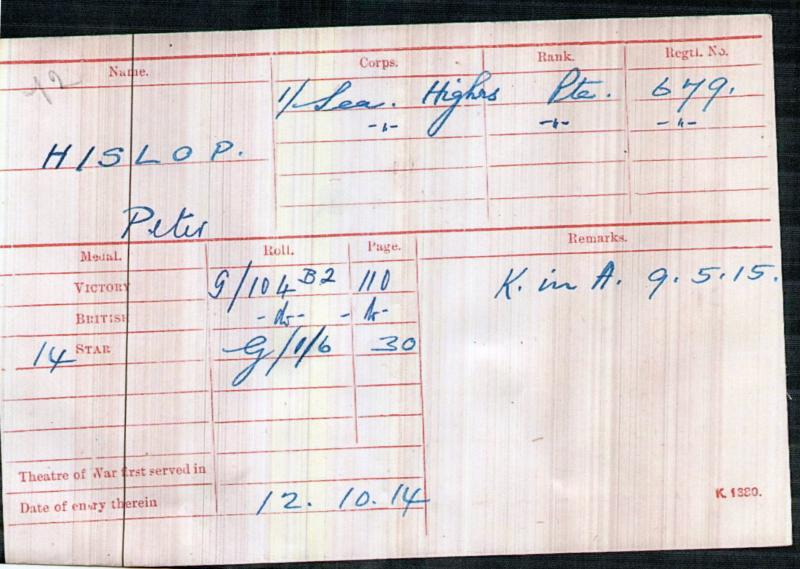 42
Name. Corps. Rank. Regtl. No.
1/ Sea. Highrs Pte. 679.
-"- -"- -"-
HISLOP.
Peter
Medal. Roll. Page. Remarks.
VICTORY G/104 B2 110 K. in A. 9.5.15.
BRITISH -do- -do-
14 STAR G/1/6 30
Theatre of War first served in
Date of entry therein 12.10.14
K. 1380.